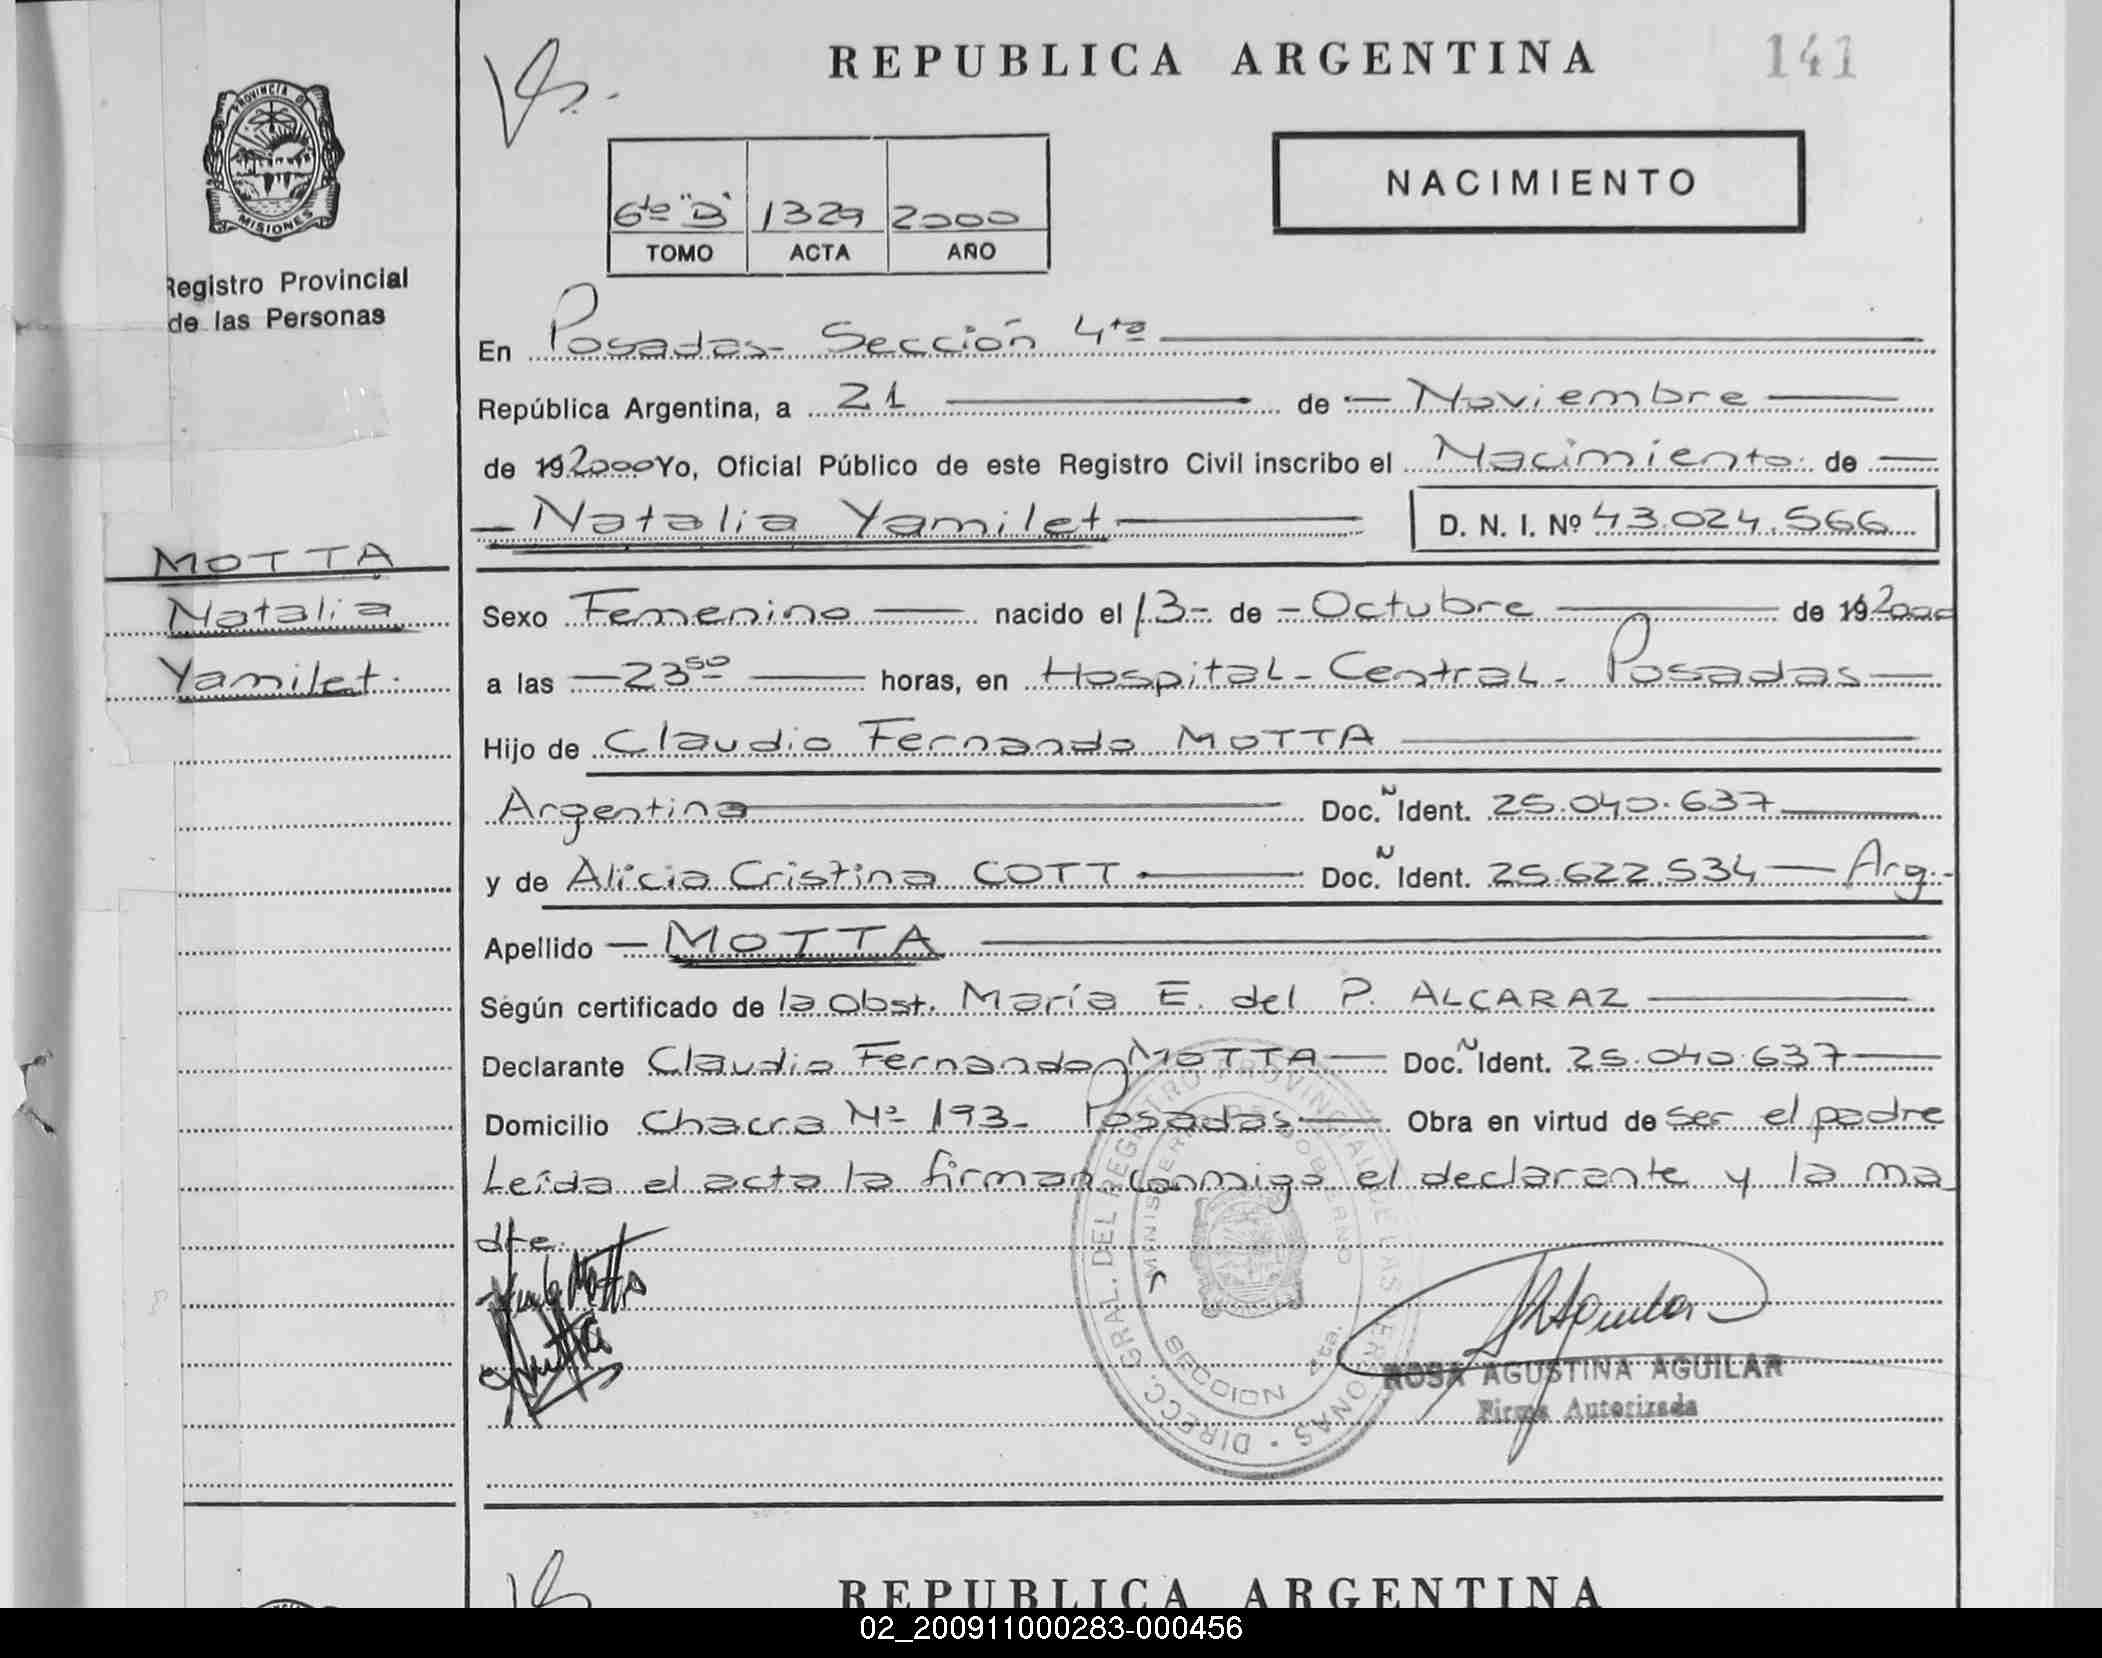 REPUBLICA ARGENTINA
141
PROVINCIA DE
MISIONES
Registro Provincial
de las Personas
6to "D" 1329 2000
TOMO ACTA AÑO
NACIMIENTO
En Posadas- Sección 4ta
República Argentina, a 21 de Noviembre
de 192000 Yo, Oficial Público de este Registro Civil inscribo el Nacimiento de
Natalia Yamilet D. N. I. Nº 43.024.566
MOTTA
Natalia
Yamilet.
Sexo Femenino nacido el 13- de - Octubre de 192000
a las 23 50 horas, en Hospital - Central - Posadas
Hijo de Claudio Fernando MOTTA
Argentina Doc. N Ident. 25.040.637
y de Alicia Cristina COTT Doc. N Ident. 25.622.534 Arg.-
Apellido MOTTA
Según certificado de la Obst. María E. del P. ALCARAZ
Declarante Claudio Fernando MOTTA Doc. N Ident. 25.040.637
Domicilio Chacra Nº 193- Posadas Obra en virtud de ser el padre
Leída el acta la firman conmigo el declarante y la ma
dre.
DIRECC. GRAL. DEL REGISTRO PROVINCIAL DE LAS PERSONAS
MINISTERIO DE GOBIERNO
SECCION 4ta.
ROSA AGUSTINA AGUILAR
Firma Autorizada
REPUBLICA ARGENTINA
02_200911000283-000456